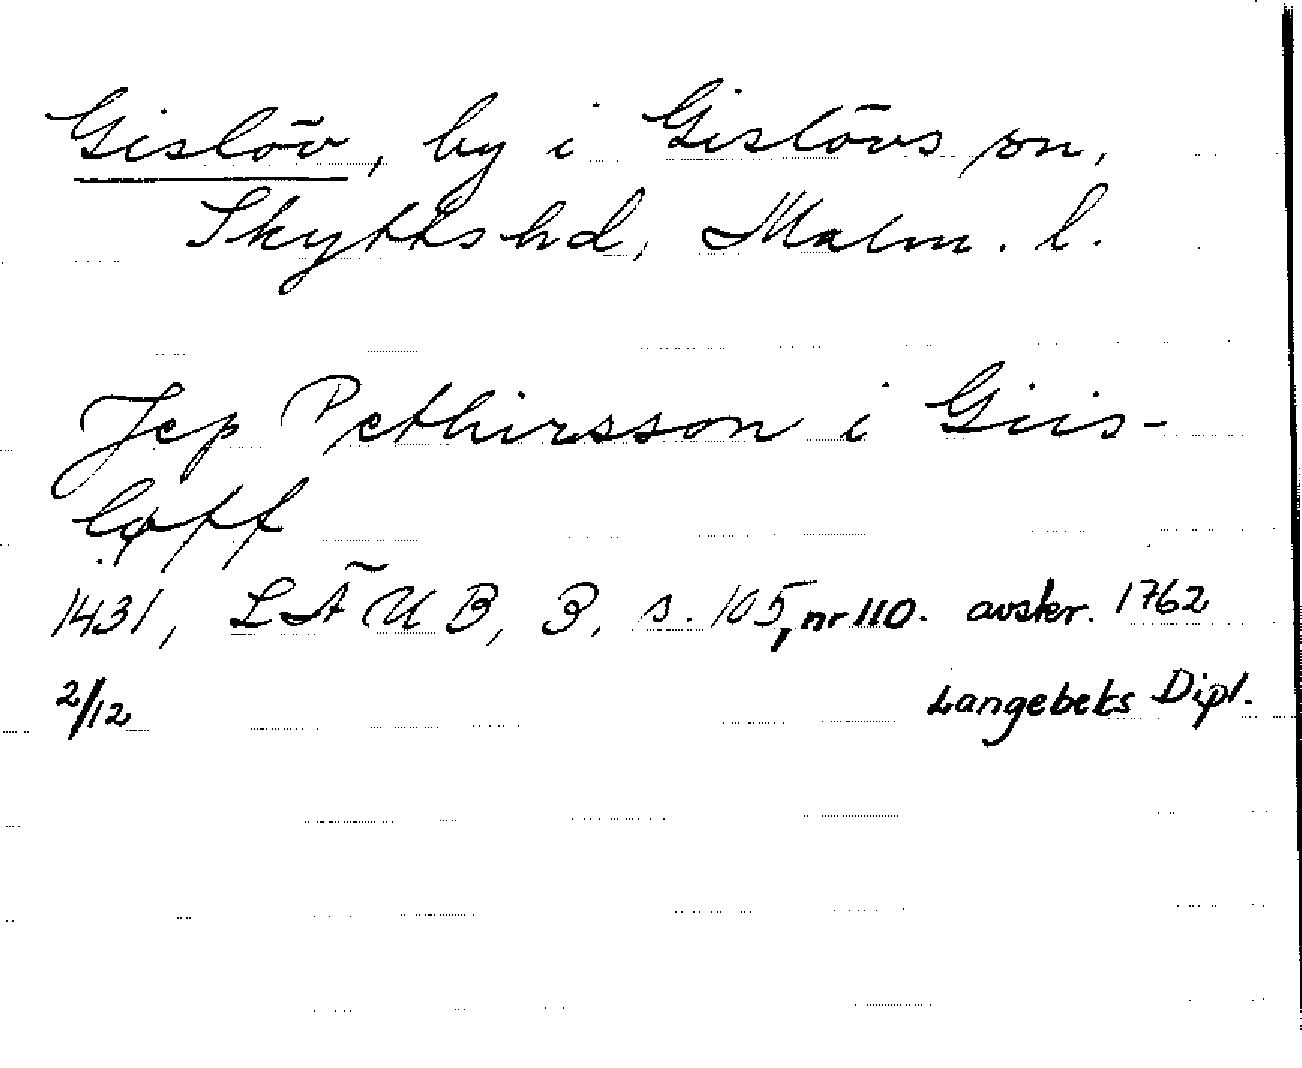 Gislöv, by i Gislövs sn,
Skytts hd, Malm. l.
Jep Pethirsson i Giis-
løff
1431, LÄUB, 3, s. 105, nr 110. avskr. 1762
2/12 Langebeks Dipl.